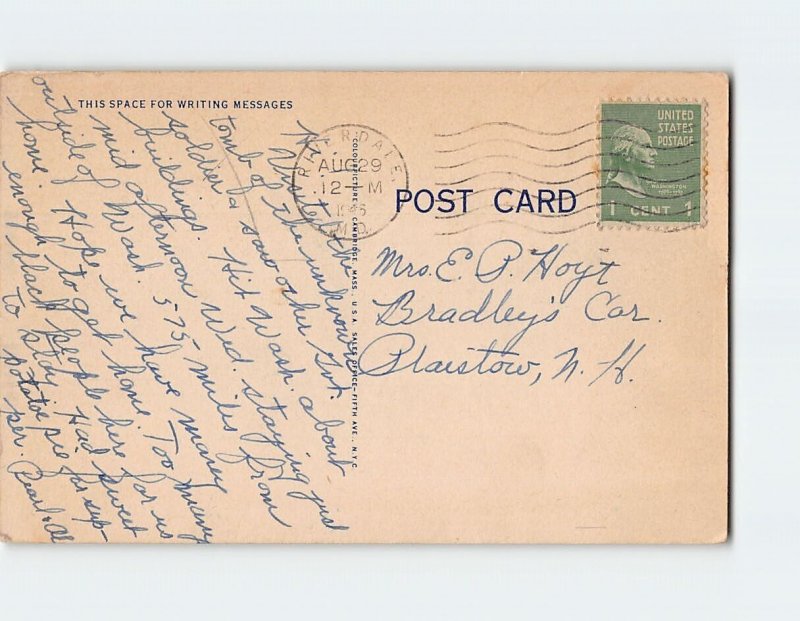 THIS SPACE FOR WRITING MESSAGES
Hi.
Visited the
tomb of the unknown
soldier & saw other Gvt.
buildings. Hit Wash. about
mid afternoon Wed. staying just
outside of Wash. 575 miles from
home. Hope we have money
enough to get home. Too many
black people here for us
to stay. Had sweet
potatoe pie for sup-
per. Pearl & Al
COLOURPICTURE CAMBRIDGE, MASS., U.S.A. SALES OFFICE—FIFTH AVE., N.Y.C.
RIVERDALE
AUG 29
12-M
MD.
POST CARD
UNITED
STATES
POSTAGE
WASHINGTON
1 CENT 1
Mrs. E. P. Hoyt
Bradley's Cor.
Plaistow, N. H.